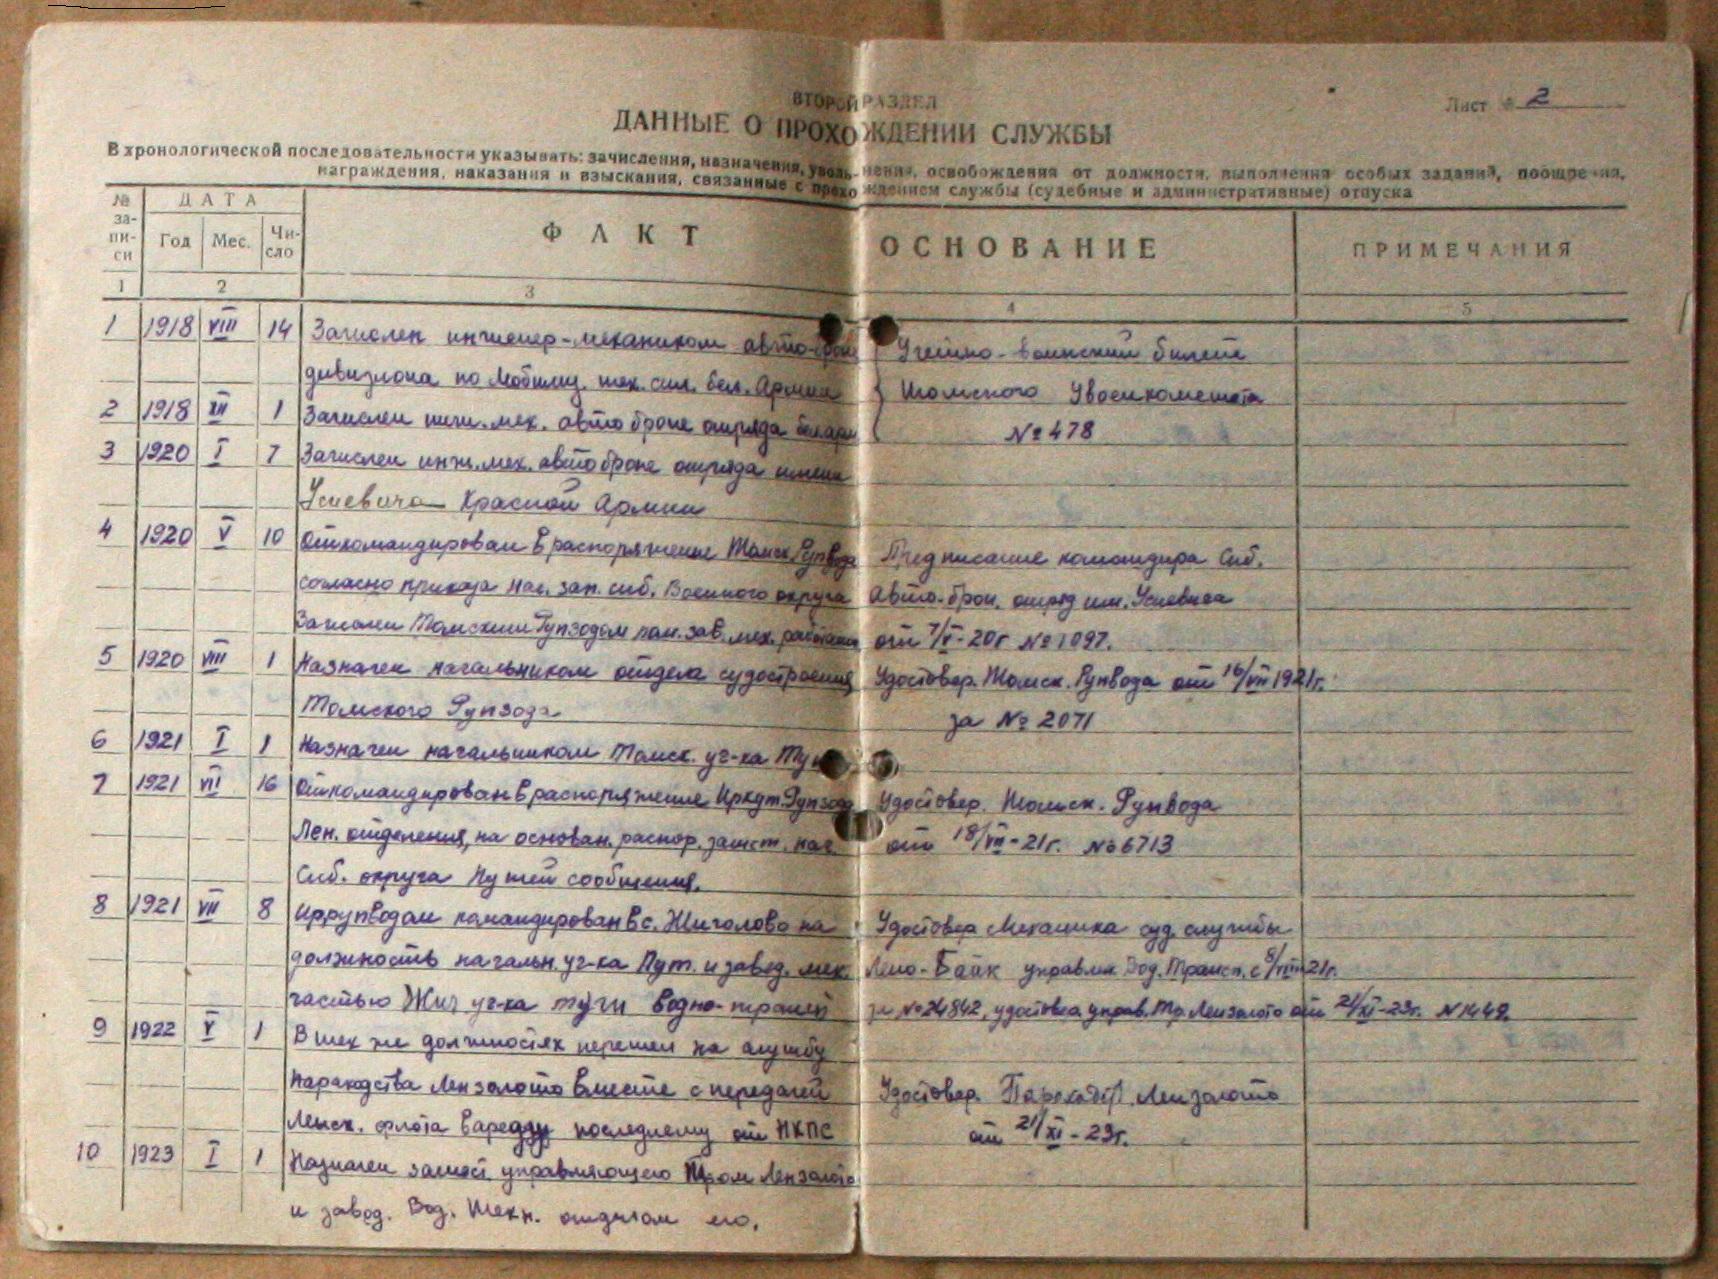 ВТОРОЙ РАЗДЕЛ
Лист № 2
ДАННЫЕ О ПРОХОЖДЕНИИ СЛУЖБЫ
В хронологической последовательности указывать: зачисления, назначения, уволь-нения, освобождения от должности, выполнения особых заданий, поощрения,
награждения, наказания и взыскания, связанные с прохождением службы (судебные и административные) отпуска
№ за-пи-си
ДАТА
Год Мес. Чи-сло
ФАКТ
ОСНОВАНИЕ
ПРИМЕЧАНИЯ
1 2 3 4 5
1 1918 VIII 14 Зачислен инженер-механиком авто-брон Учетно-воинский билет
дивизиона по мобилиз. тех. сил. бел. Армии Томского Увоенкомата
2 1918 XII 1 Зачислен инж. мех. авто броне отряда бел арм №478
3 1920 I 7 Зачислен инж. мех. авто броне отряда имени
Усиевича Красной Армии
4 1920 V 10 Откомандирован в распоряжение Томск. Рупвода Предписание командира Сиб.
согласно приказа Нач. зап. сиб. Военного округа Авто-брон. отряд им. Усиевича
Зачислен Томским Рупводом пом. зав. мех. работами от 7/V-20г №1097.
5 1920 VIII 1 Назначен начальником отдела судостроения Удостовер. Томск. Рупвода от 16/VII 1921г.
Томского Рупвода за №2071
6 1921 I 1 Назначен начальником Томск. уч-ка
7 1921 VII 16 Откомандирован в распоряжение Иркут. Рупвода Удостовер. Томск. Рупвода
Лен. отделения, на основан. распор. замест. нач. от 18/VII-21г. №6713
Сиб. округа Путей сообщения.
8 1921 VII 8 Иррупводом командирован в с. Жигалово на Удостовер Механика суд. службы
должность начальн. уч-ка Пут. и завед. мех. Лено-Байк управлен. Вод. Трансп. с 8/VIII 21г.
частью Жиг уч-ка тяги водно-трансп за №24842, удостовер управ. Тр. Лензолото от 21/XI-23г. №1449.
9 1922 V 1 В тех же должностях перешел на службу
Пароходства Лензолото вместе с передачей Удостовер. Пароходст. Лензолото
Ленск. флота в аренду последнему от НКПС от 21/XI-23г.
10 1923 I 1 Назначен замест. управляющего Тром Лензолото
и завед. Вод. Техн. отделом его.